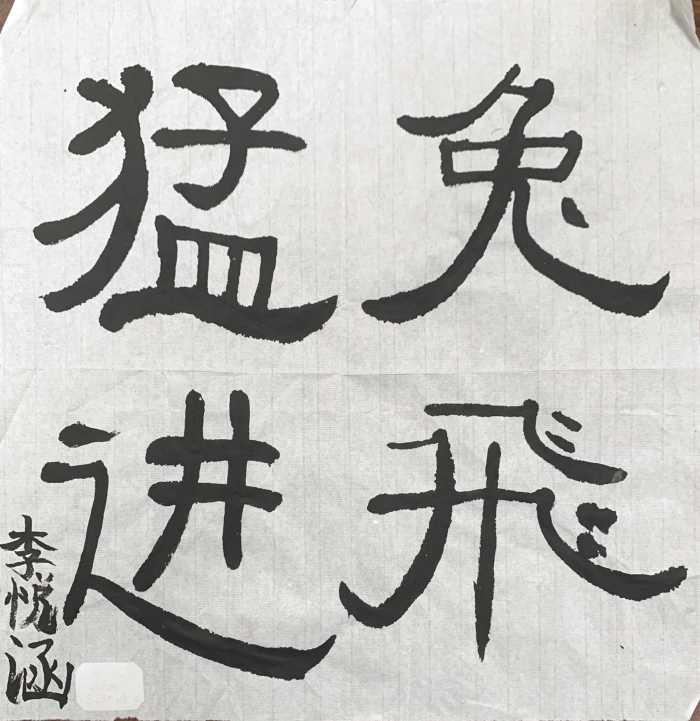 兔飛
猛进
李悦涵